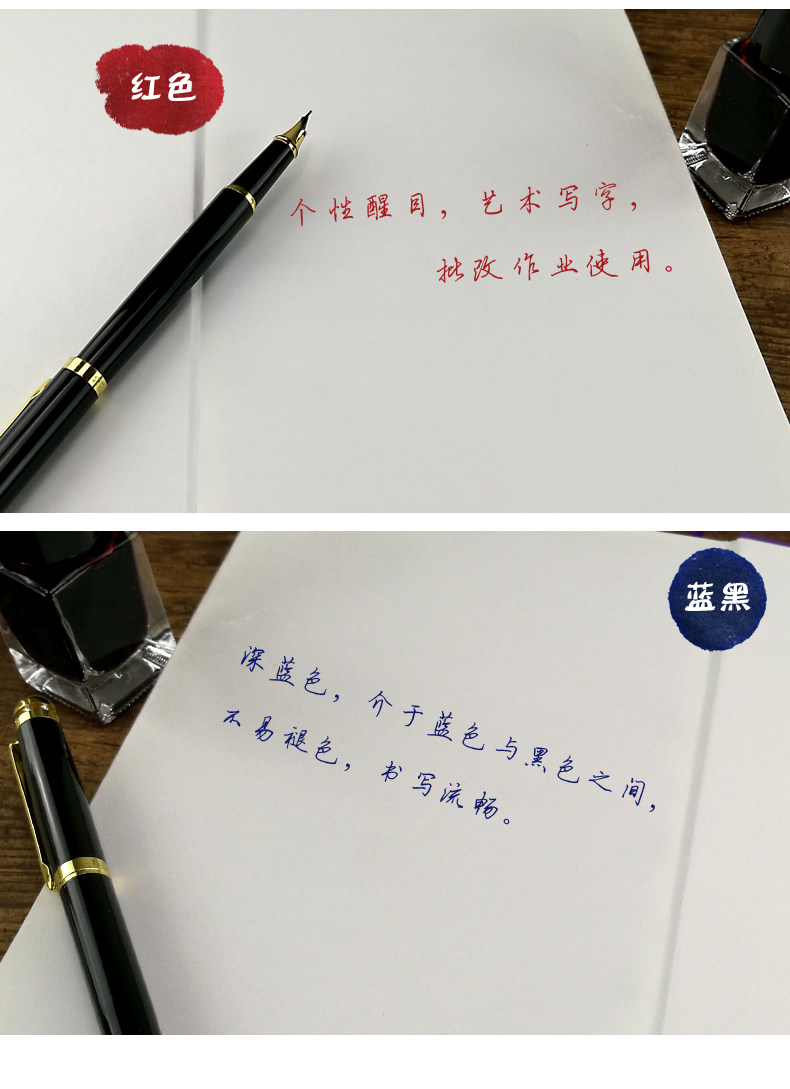 红色
个性醒目，艺术写字，
批改作业使用。
蓝黑
深蓝色，介于蓝色与黑色之间，
不易褪色，书写流畅。